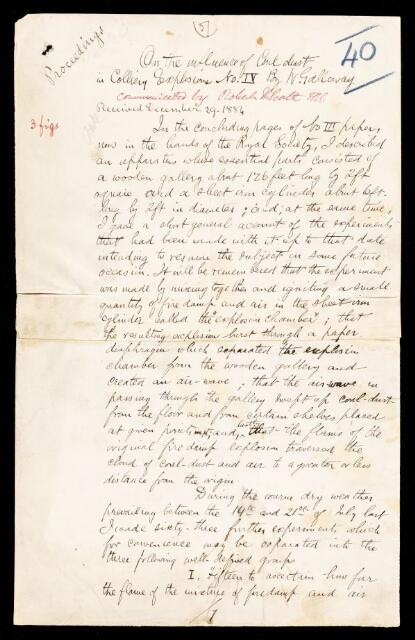 (5)
Proceedings
40
On the influence of Coal dust
in Colliery Explosions No. IV By W. Galloway
Communicated by Robert H Scott FRS.
Received December 29. 1884
3 figs
In the concluding pages of No III paper,
now in the hands of the Royal Society, I described
an apparatus whose essential parts consisted of
a wooden gallery about 126 feet long by 2ft
square and a sheet iron cylinder about 6ft.
long by 2ft in diameter; and, at the same time,
I gave a short general account of the experiments
that had been made with it up to that date
intending to resume the subject on some future
occasion. It will be remembered that the experiment
was made by mixing together and igniting a small
quantity of fire damp and air in the sheet iron
cylinder called the "explosion chamber"; that
the resulting explosion burst through a paper
diaphragm which separated the explosion
chamber from the wooden gallery and
created an air-wave; that the air-wave in
passing through the gallery swept up coal-dust
from the floor and from certain shelves placed
at given points; and, lastly, that the flame of the
original firedamp explosion traversed the
cloud of coal-dust and air to a greater or less
distance from the origin
During the warm dry weather
prevailing between the 14th and 21st of July last
I made sixty-three further experiments which
for convenience may be separated into the
three following well-defined groups
I. Fifteen to ascertain how far
the flame of the mixture of firedamp and air